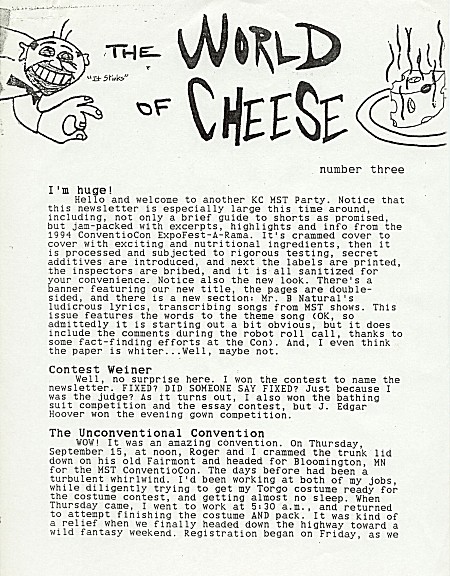 THE WORLD
"It Stinks"
OF CHEESE
number three
I'm huge!
Hello and welcome to another KC MST Party. Notice that
this newsletter is especially large this time around,
including, not only a brief guide to shorts as promised,
but jam-packed with excerpts, highlights and info from the
1994 ConventioCon ExpoFest-A-Rama. It's crammed cover to
cover with exciting and nutritional ingredients, then it
is processed and subjected to rigorous testing, secret
additives are introduced, and next the labels are printed,
the inspectors are bribed, and it is all sanitized for
your convenience. Notice also the new look. There's a
banner featuring our new title, the pages are double-
sided, and there is a new section: Mr. B Natural's
ludicrous lyrics, transcribing songs from MST shows. This
issue features the words to the theme song (OK, so
admittedly it is starting out a bit obvious, but it does
include the comments during the robot roll call, thanks to
some fact-finding efforts at the Con). And, I even think
the paper is whiter...Well, maybe not.
Contest Weiner
Well, no surprise here. I won the contest to name the
newsletter. FIXED? DID SOMEONE SAY FIXED? Just because I
was the judge? As it turns out, I also won the bathing
suit competition and the essay contest, but J. Edgar
Hoover won the evening gown competition.
The Unconventional Convention
WOW! It was an amazing convention. On Thursday,
September 15, at noon, Roger and I crammed the trunk lid
down on his old Fairmont and headed for Bloomington, MN
for the MST ConventioCon. The days before had been a
turbulent whirlwind. I'd been working at both of my jobs,
while diligently trying to get my Torgo costume ready for
the costume contest, and getting almost no sleep. When
Thursday came, I went to work at 5:30 a.m., and returned
to attempt finishing the costume AND pack. It was kind of
a relief when we finally headed down the highway toward a
wild fantasy weekend. Registration began on Friday, as we